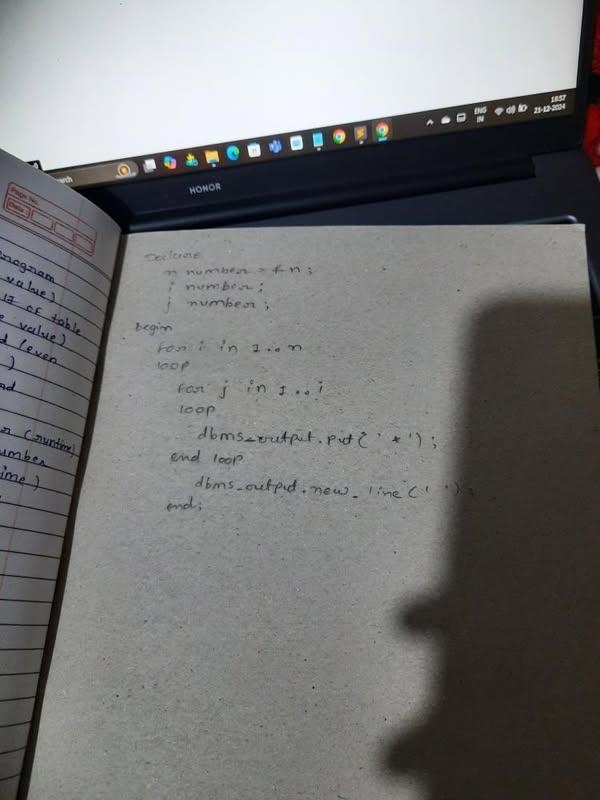 18:57
ENG
IN
21-12-2024
HONOR
Page No.
Date
program
value)
17 of table
e value)
d (even
)
nd
r (runtime)
umber
ime)
Declare
n number = &n;
i number;
j number;
begin
for i in 1..n
loop
for j in 1..i
loop
dbms_output.put(' *');
end loop
dbms_output.new_line(' ');
end;